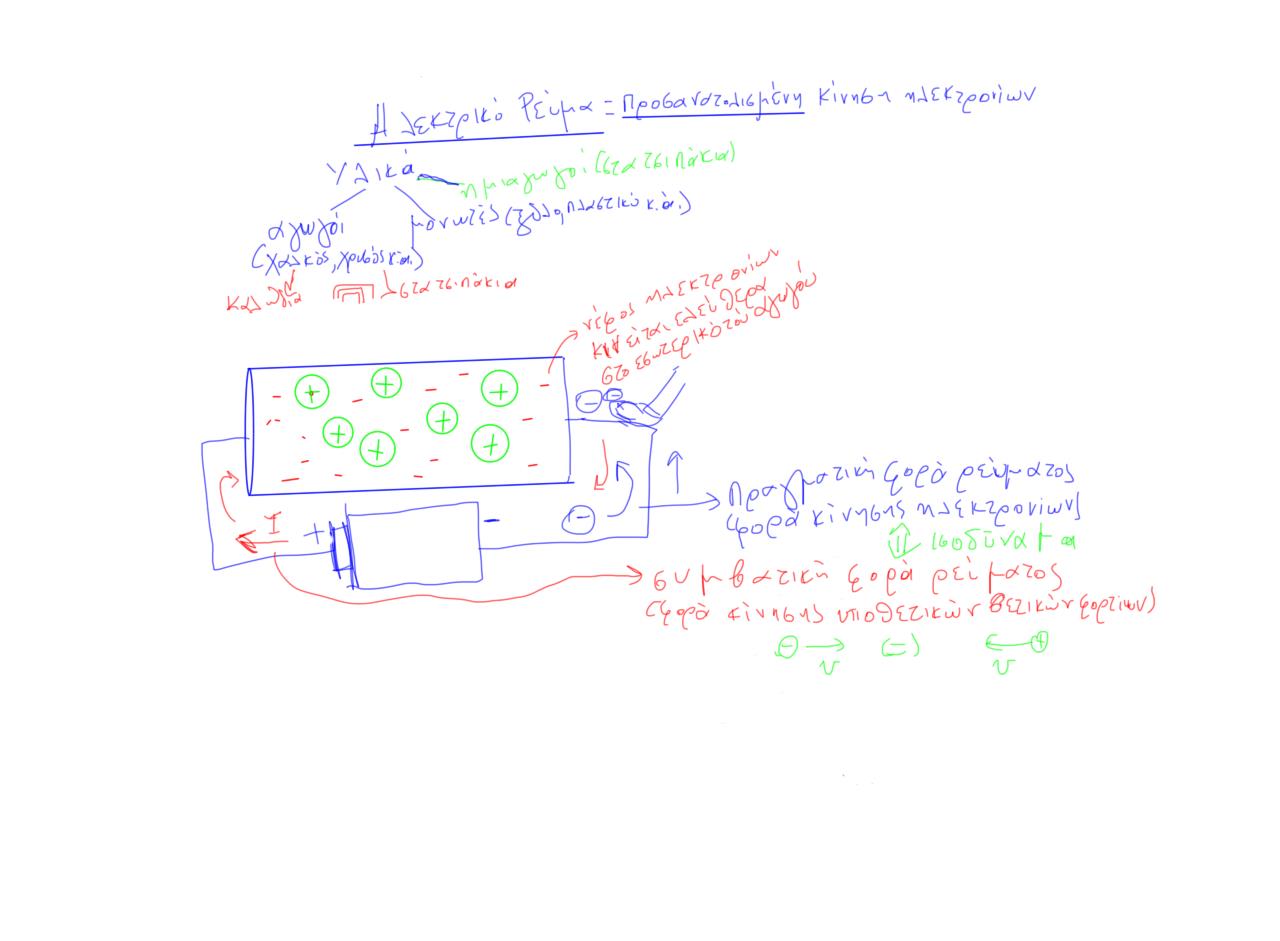 Ηλεκτρικό Ρεύμα = Προσανατολισμένη κίνηση ηλεκτρονίων
Υλικά
ημιαγωγοί (στα τσιπάκια)
αγωγοί
μονωτές (ξύλο, πλαστικό κ.ά.)
(χαλκός, χρυσός κ.ά.)
καλώδια
στα τσιπάκια
νέφος ηλεκτρονίων
κινείται ελεύθερα
στο εσωτερικό του αγωγού
+ + +
+ + + +
- -
I
+
-
-
Πραγματική φορά ρεύματος
(φορά κίνησης ηλεκτρονίων)
ισοδύναμα
συμβατική φορά ρεύματος
(φορά κίνησης υποθετικών θετικών φορτίων)
- → (=) ← +
v v